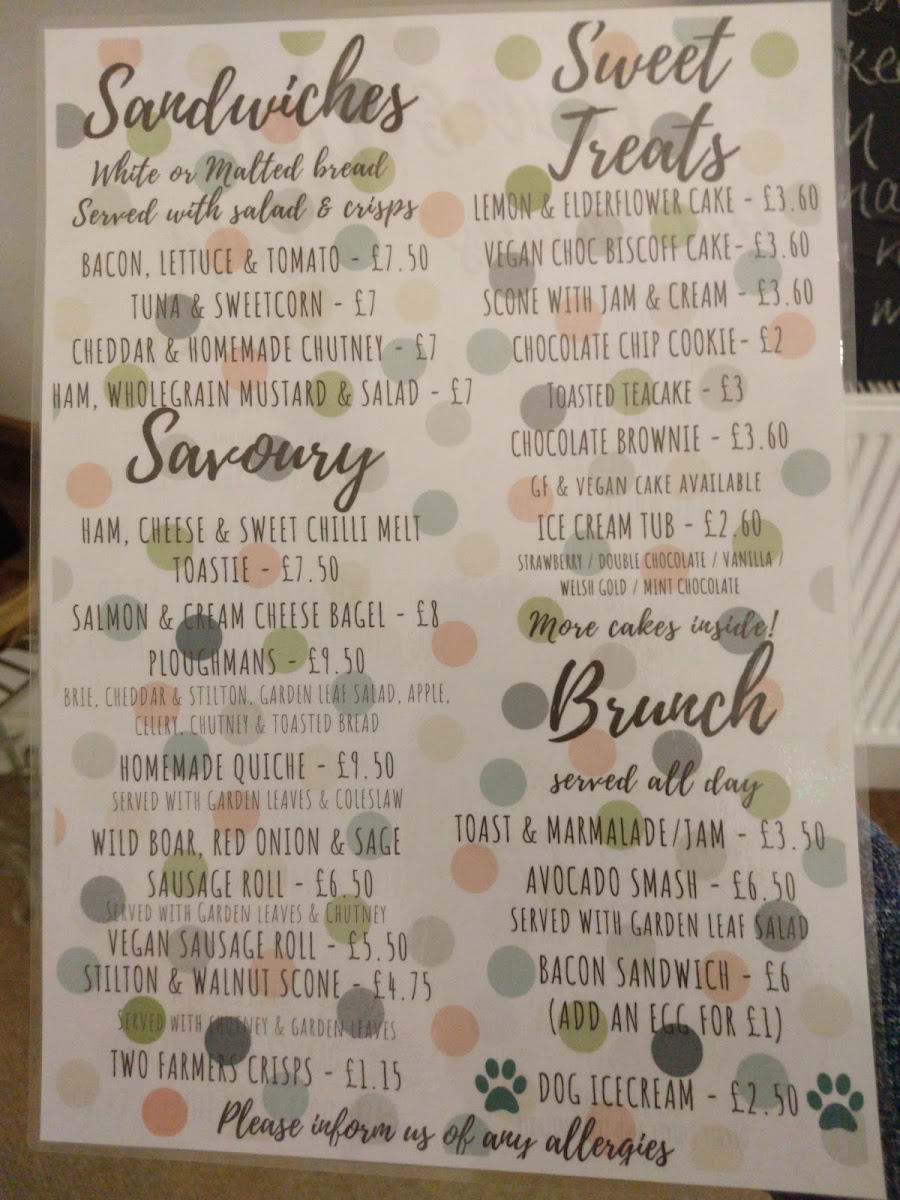 Sandwiches
White or Malted bread
Served with salad & crisps
BACON, LETTUCE & TOMATO - £7.50
TUNA & SWEETCORN - £7
CHEDDAR & HOMEMADE CHUTNEY - £7
HAM, WHOLEGRAIN MUSTARD & SALAD - £7
Savoury
HAM, CHEESE & SWEET CHILLI MELT
TOASTIE - £7.50
SALMON & CREAM CHEESE BAGEL - £8
PLOUGHMANS - £9.50
BRIE, CHEDDAR & STILTON, GARDEN LEAF SALAD, APPLE,
CELERY, CHUTNEY & TOASTED BREAD
HOMEMADE QUICHE - £9.50
SERVED WITH GARDEN LEAVES & COLESLAW
WILD BOAR, RED ONION & SAGE
SAUSAGE ROLL - £6.50
SERVED WITH GARDEN LEAVES & CHUTNEY
VEGAN SAUSAGE ROLL - £5.50
STILTON & WALNUT SCONE - £4.75
SERVED WITH CHUTNEY & GARDEN LEAVES
TWO FARMERS CRISPS - £1.15
Sweet
Treats
LEMON & ELDERFLOWER CAKE - £3.60
VEGAN CHOC BISCOFF CAKE- £3.60
SCONE WITH JAM & CREAM - £3.60
CHOCOLATE CHIP COOKIE- £2
TOASTED TEACAKE - £3
CHOCOLATE BROWNIE - £3.60
GF & VEGAN CAKE AVAILABLE
ICE CREAM TUB - £2.60
STRAWBERRY / DOUBLE CHOCOLATE / VANILLA /
WELSH GOLD / MINT CHOCOLATE
More cakes inside!
Brunch
served all day
TOAST & MARMALADE/JAM - £3.50
AVOCADO SMASH - £6.50
SERVED WITH GARDEN LEAF SALAD
BACON SANDWICH - £6
(ADD AN EGG FOR £1)
DOG ICECREAM - £2.50
Please inform us of any allergies